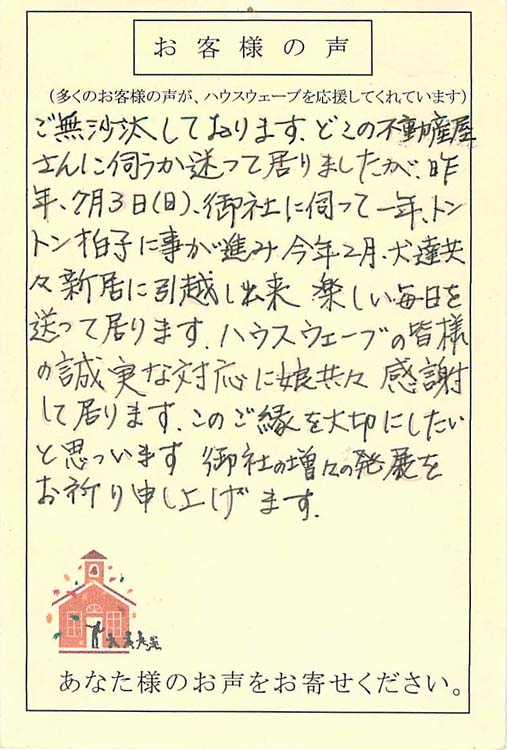 お客様の声
（多くのお客様の声が、ハウスウェーブを応援してくれています）
ご無沙汰しております、どこの不動産屋
さんに伺うか迷って居りましたが、昨
年、7月3日(日)、御社に伺って一年、トン
トン拍子に事が進み今年2月、犬達共
々新居に引越し出来 楽しい毎日を
送って居ります、ハウスウェーブの皆様
の誠実な対応に娘共々 感謝
して居ります、このご縁を大切にしたい
と思っいます 御社の増々の発展を
お祈り申し上げます、
あなた様のお声をお寄せください。